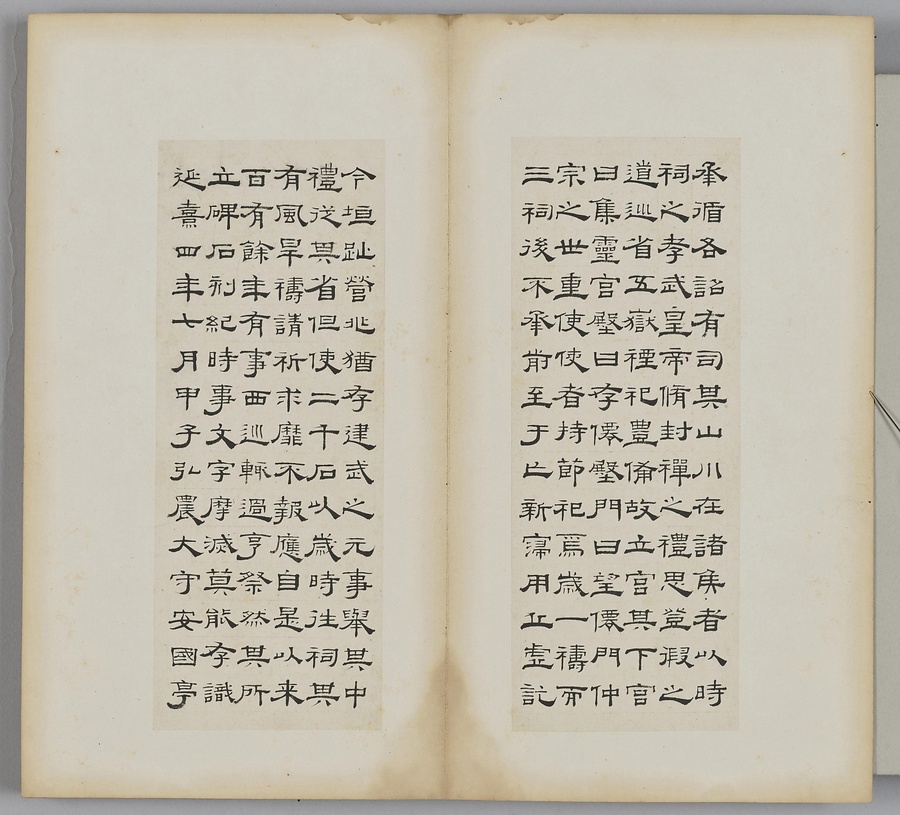 承循各詔有司其山川在諸侯者以時
祠之孝武皇帝脩封禪之禮思登假之
道巡省五嶽禋祀豐備故立宮其下宮
曰集靈宮壂曰存僊壂門曰望僊門仲
宗之世重使使者持節祀焉歲一禱而
三祠後不承前至于亡新寖用丘虛訖
今垣趾營兆猶存建武之元事舉其中
禮從其省但使二千石以歲時往祠其
有風旱禱請祈求靡不報應自是以来
百有餘年有事西巡輒過亨祭然其所
立碑石刻紀時事文字摩滅莫能存識
延熹四年七月甲子弘農大守安國亭